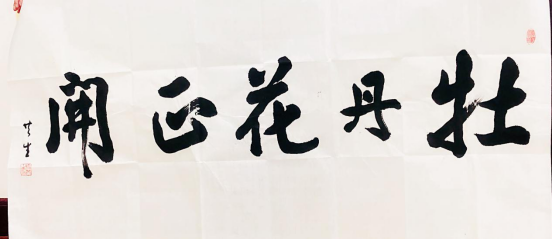 牡丹花正開